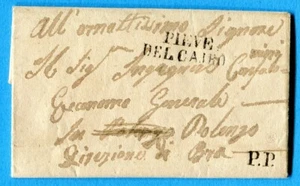 All'ornatissimo Signore
PIEVE
DEL CAIRO
Il Sig.
Economo Generale
Polenzo
Direzione di Bra
P.P.